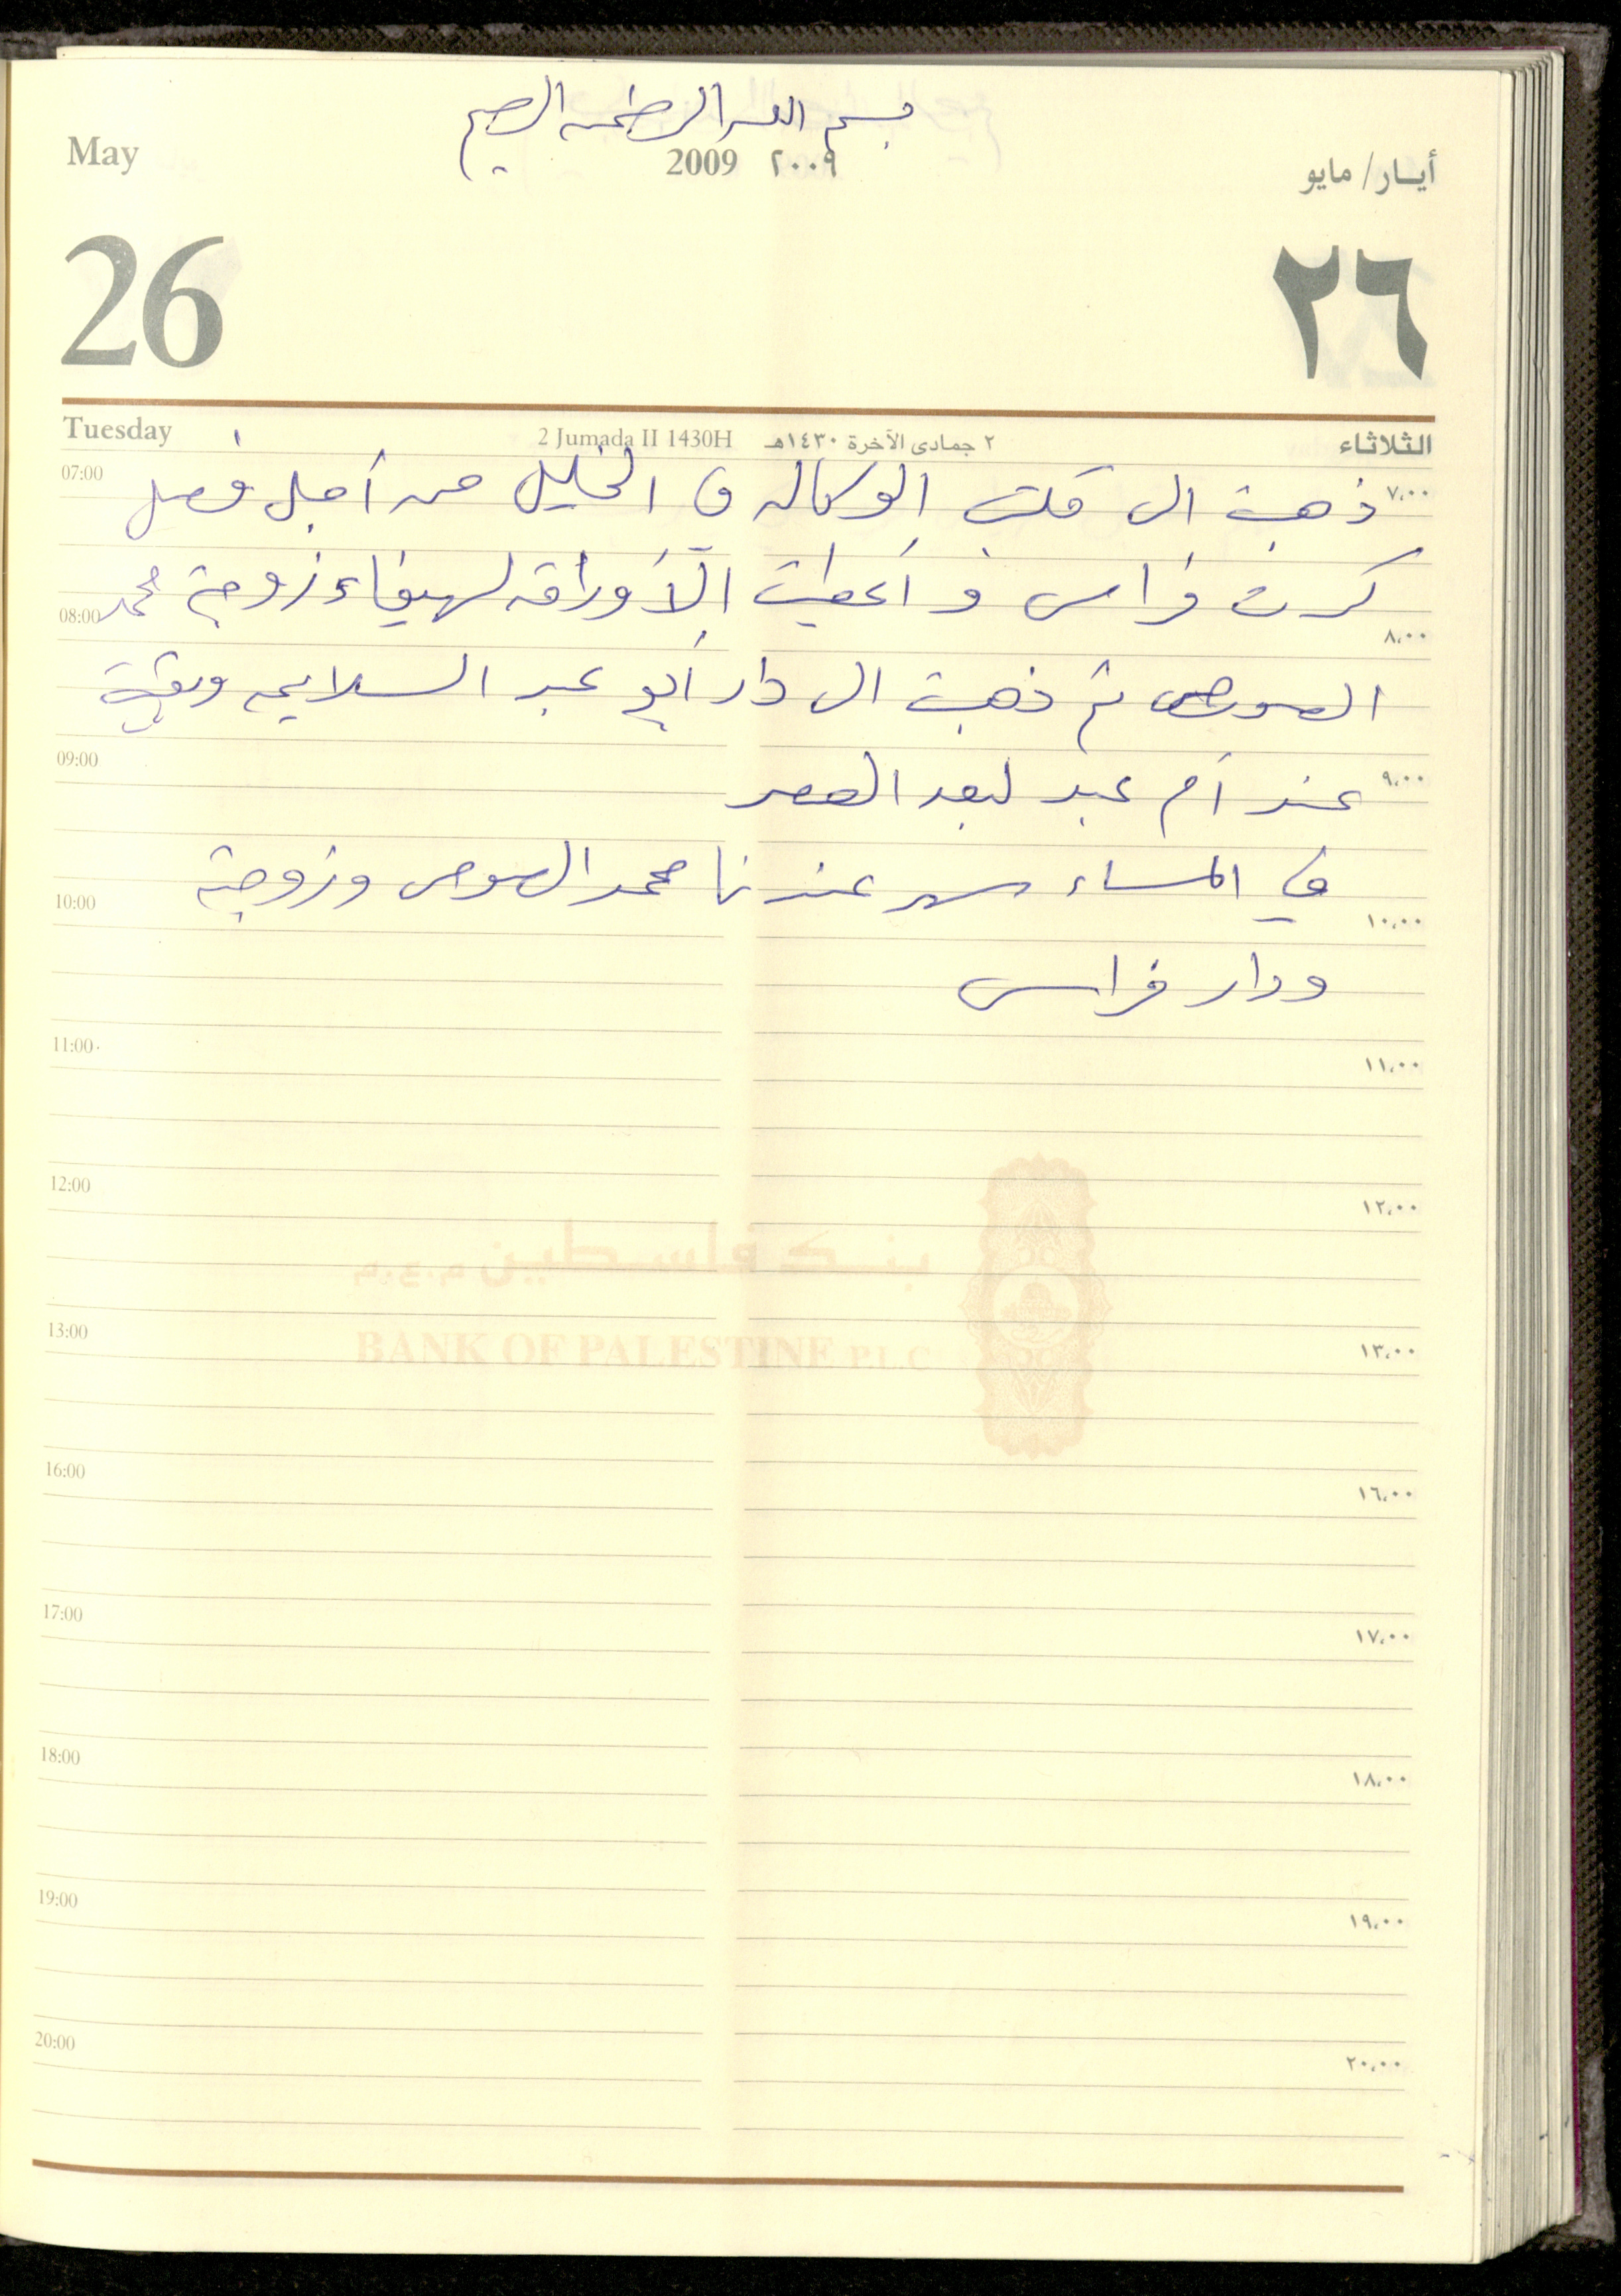 بسم الله الرحمن الرحيم
May 2009 ٢٠٠٩ أيـار/ مايو
26 ٢٦
Tuesday 2 Jumada II 1430H ٢ جمادى الآخرة ١٤٣٠هـ الثلاثاء
07:00 ٧،٠٠
ذهبت الى مكتب الوكاله في الخليل من أجل فصل
كرت فراس و أعطيت الأوراق لهيفاء زوجة محمد
08:00 ٨،٠٠
الصوص ثم ذهبت الى دار أبو عبد السلايمه وبقيت
09:00 ٩،٠٠
عند أم عبد لبعد العصر
في المساء سهر عندنا محمد الصوص وزوجته
10:00 ١٠،٠٠
ودار فراس
11:00 ١١،٠٠
12:00 ١٢،٠٠
بنـك فلسـطين م.ع.م
13:00 ١٣،٠٠
BANK OF PALESTINE P.L.C
16:00 ١٦،٠٠
17:00 ١٧،٠٠
18:00 ١٨،٠٠
19:00 ١٩،٠٠
20:00 ٢٠،٠٠